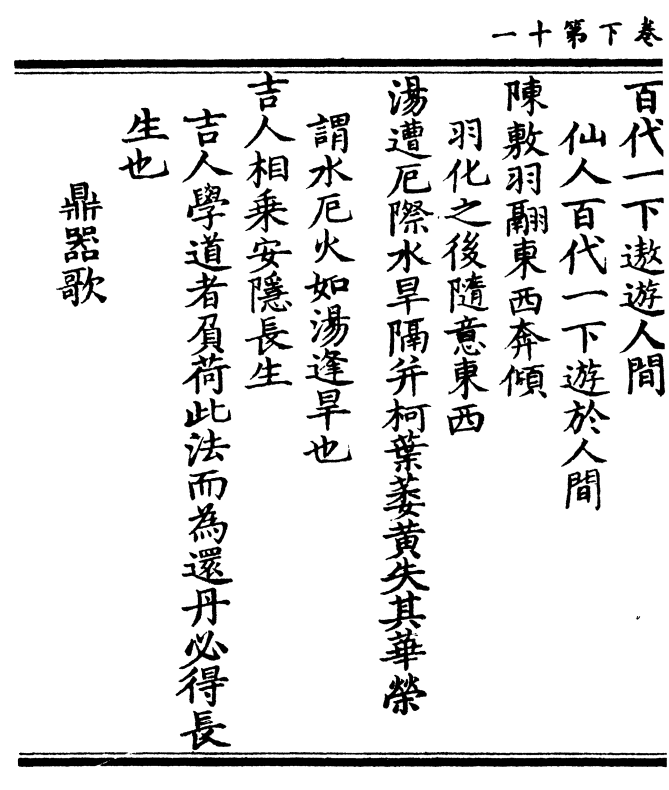 卷下第十一
百代一下遨遊人間
仙人百代一下遊於人間
陳敷羽翮東西奔傾
羽化之後隨意東西
湯遭厄際水旱隔并柯葉萎黃失其華榮
謂水厄火如湯逢旱也
吉人相乘安隱長生
吉人學道者負荷此法而為還丹必得長
生也
鼎器歌